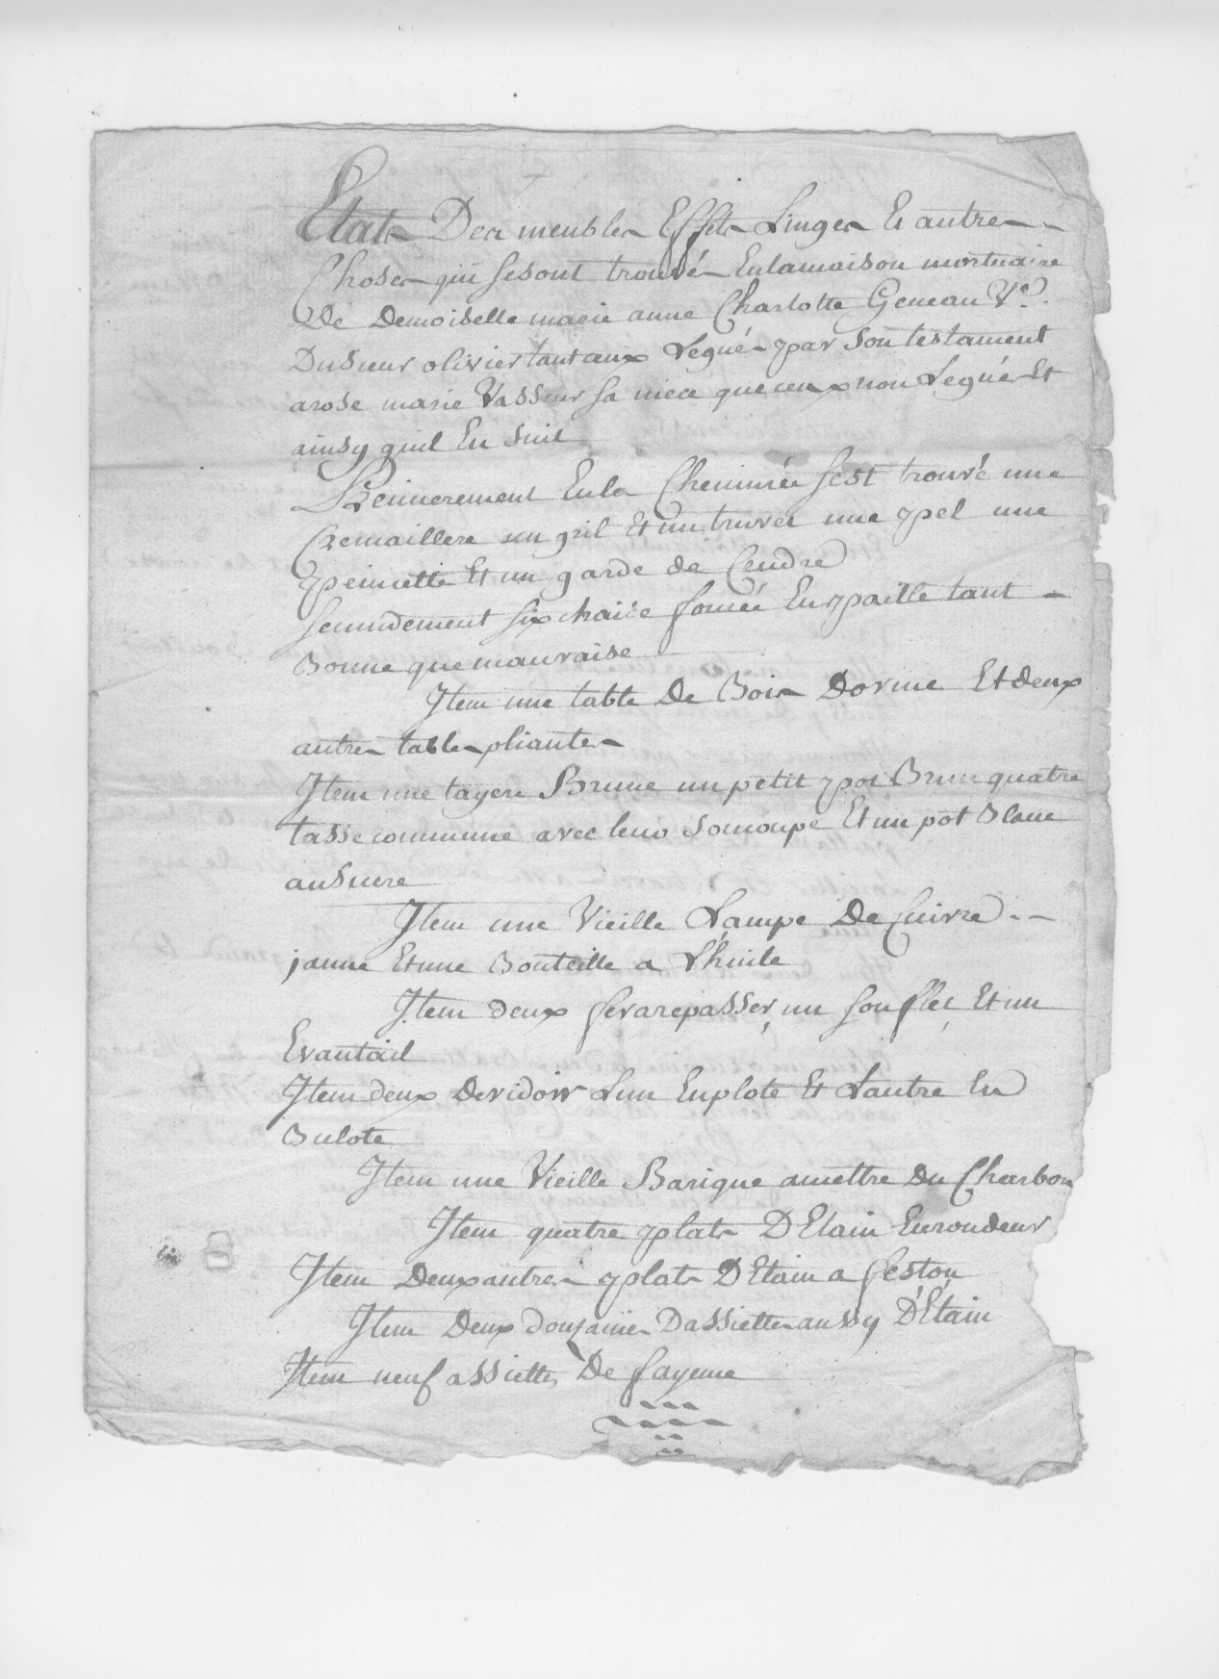 Etats Des meubles Effets Linges Et autres
Choses qui se sont trouvés En la maison mortuaire
De Demoiselle marie anne Charlotte Geneau Ve
Du Sieur olivier tant aux Legués par son testament
a rose marie Vasseur sa niece que ceux non Legués Et
ainsy quil En Suit
Premierement En la Cheminée s'est trouvé une
Cremaillere un gril Et un trever une pel une
peincette Et un garde de Cendre
secundement six chaise foncée En paille tant
Bonne que mauvaise
Item une table De Bois Dorme Et deux
autres tables pliantes
Item une tayere Brune un petit pot Brun quatre
tasse commune avec leur Soucoupe Et un pot Blanc
au Sucre
Item une Vieille Lampe De Cuivre
jaune Et une Bouteille a Lhuile
Item deux fer a repasser, un souflet, Et un
Evantail
Item deux Devidoir Lun En plote Et Lautre En
Bulote
Item une Vieille Barique a mettre Du Charbon
Item quatre plats D'Etain En rondeur
Item Deux autres plats D'Etain a feston
Item Deux douzaines Dassiettes aussy D'Étain
Item neuf assiettes De fayence